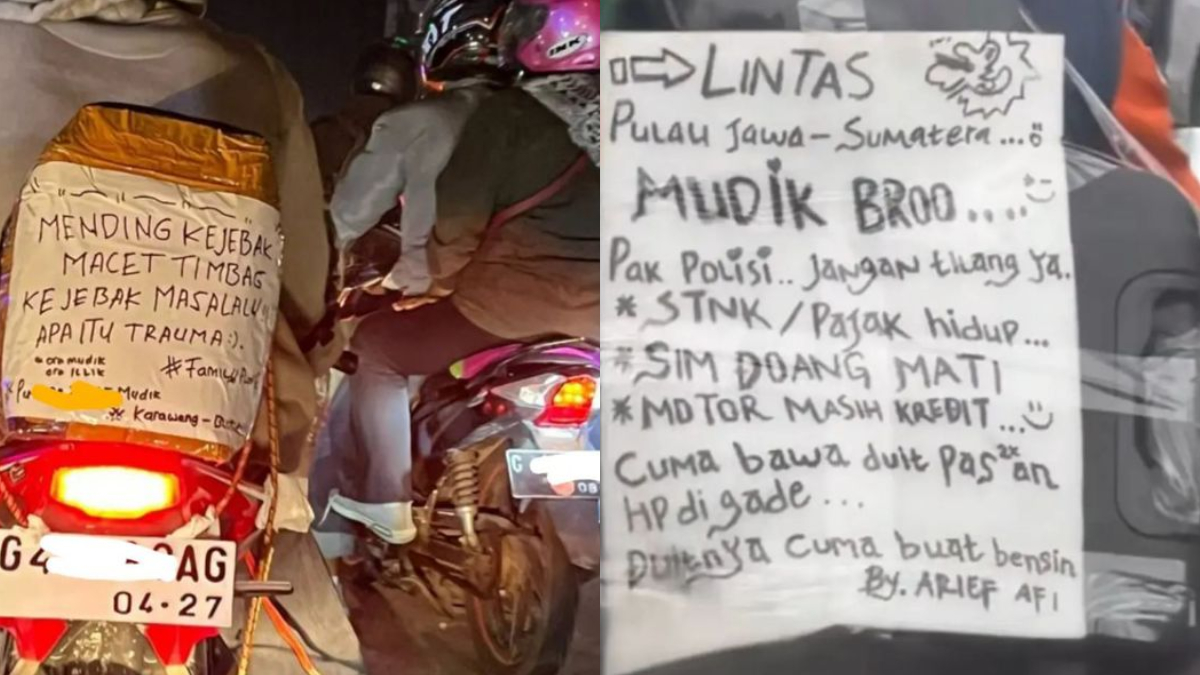 MENDING KEJEBAK
MACET TIMBAG
KEJEBAK MASALALU
APA ITU TRAUMA :).
* ora mudik
ora
#Family
Mudik
* Karawang -
G4 AG
04·27
G
08
INK
LINTAS
Pulau Jawa - Sumatera ...
MUDIK BROO ....
Pak Polisi.. Jangan tilang ya.
* STNK / Pajak hidup...
* SIM DOANG MATI
* MOTOR MASIH KREDIT ...
Cuma bawa duit Pas²ˣan
HP di gade ...
Duitnya cuma buat bensin
By. ARIEF AFI